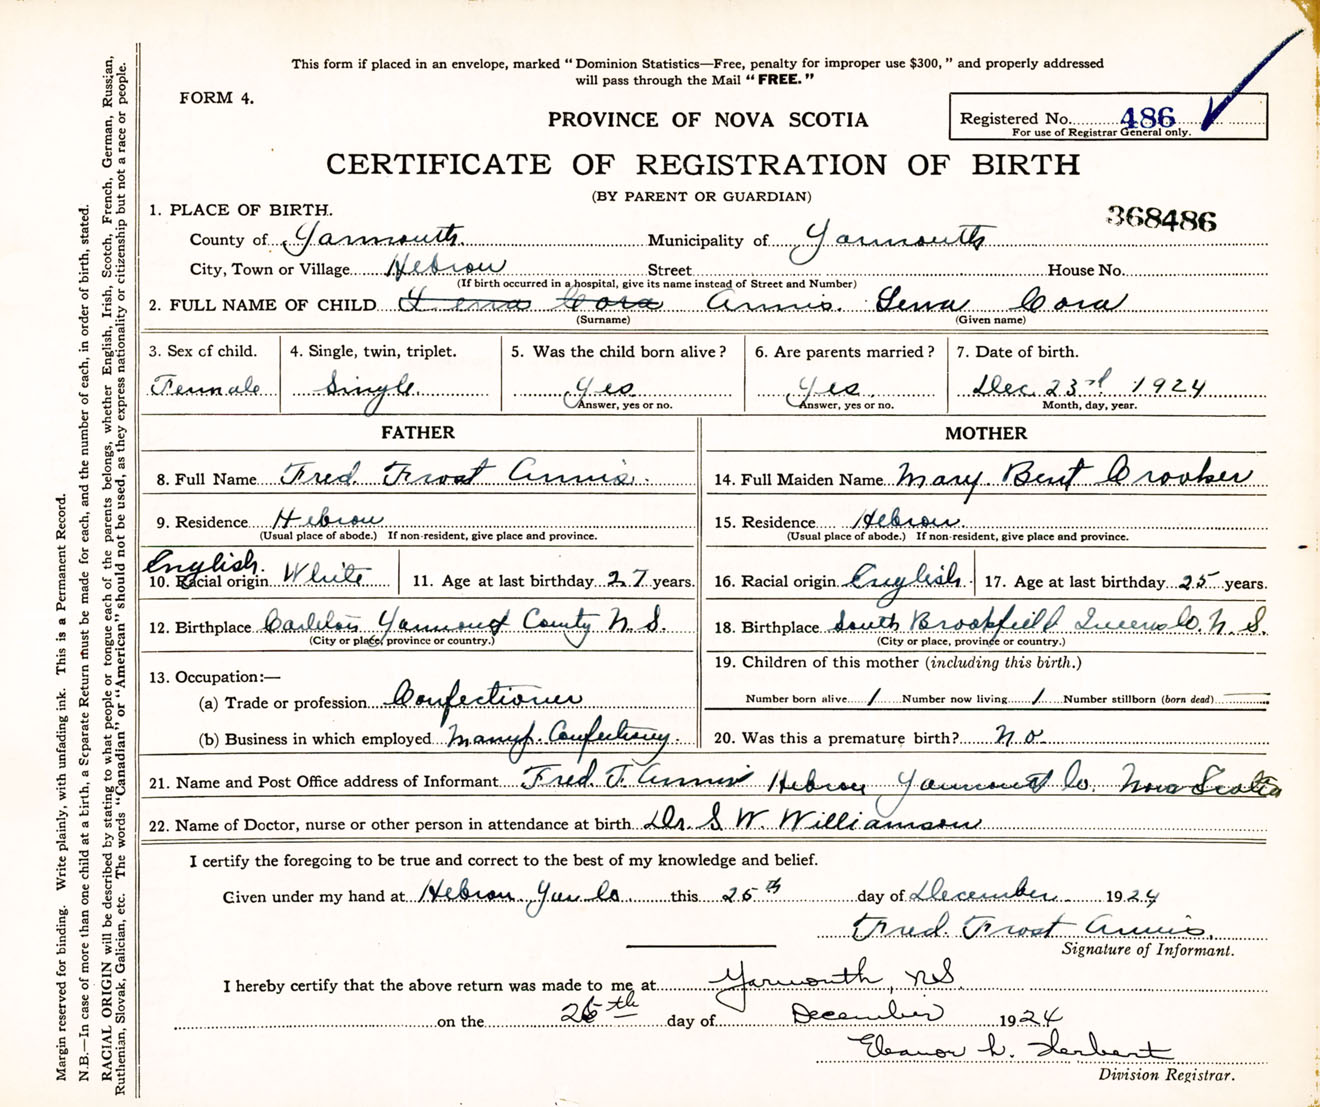 This form if placed in an envelope, marked "Dominion Statistics—Free, penalty for improper use $300," and properly addressed
will pass through the Mail "FREE."
FORM 4.
PROVINCE OF NOVA SCOTIA
Registered No. 486
For use of Registrar General only.
CERTIFICATE OF REGISTRATION OF BIRTH
(BY PARENT OR GUARDIAN)
368486
1. PLACE OF BIRTH.
County of Yarmouth Municipality of Yarmouth
City, Town or Village Hebron Street House No.
(If birth occurred in a hospital, give its name instead of Street and Number)
2. FULL NAME OF CHILD Lena Cora Annis. Lena Cora
(Surname) (Given name)
3. Sex of child. 4. Single, twin, triplet. 5. Was the child born alive? 6. Are parents married? 7. Date of birth.
Female Single Yes Yes Dec. 23rd 1924
Answer, yes or no. Answer, yes or no. Month, day, year.
FATHER MOTHER
8. Full Name Fred. Frost Annis. 14. Full Maiden Name Mary Bent Crooker
9. Residence Hebron 15. Residence Hebron
(Usual place of abode.) If non-resident, give place and province. (Usual place of abode.) If non-resident, give place and province.
English.
10. Racial origin White 11. Age at last birthday 27 years. 16. Racial origin English 17. Age at last birthday 25 years.
12. Birthplace Carleton Yarmouth County N.S. 18. Birthplace South Brookfield Queens Co. N. S.
(City or place, province or country.) (City or place, province or country.)
13. Occupation:— 19. Children of this mother (including this birth.)
(a) Trade or profession Confectioner Number born alive 1 Number now living 1 Number stillborn (born dead)
(b) Business in which employed Manuf. Confectionery. 20. Was this a premature birth? no
21. Name and Post Office address of Informant Fred. F. Annis Hebron Yarmouth Co. Nova Scotia
22. Name of Doctor, nurse or other person in attendance at birth Dr. S W. Williamson
I certify the foregoing to be true and correct to the best of my knowledge and belief.
Given under my hand at Hebron Yar Co this 25th day of December 1924
Fred. Frost Annis.
Signature of Informant.
I hereby certify that the above return was made to me at Yarmouth, N.S.
on the 26th day of December 1924
Eleanor L. Herbert
Division Registrar.
Margin reserved for binding. Write plainly, with unfading ink. This is a Permanent Record.
N.B.—In case of more than one child at a birth, a Separate Return must be made for each, and the number of each, in order of birth, stated.
RACIAL ORIGIN will be described by stating to what people or tongue each of the parents belongs, whether English, Irish, Scotch, French, German, Russian,
Ruthenian, Slovak, Galician, etc. The words "Canadian" or "American" should not be used, as they express nationality or citizenship but not a race or people.